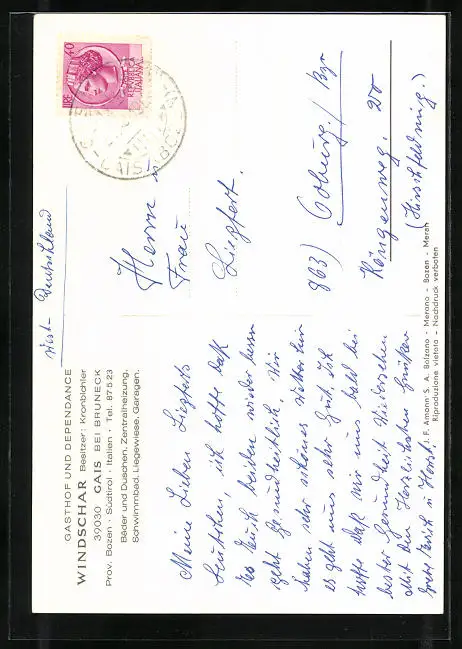 GASTHOF UND DEPENDANCE
WINDSCHAR Besitzer: Kronbichler
39030 GAIS BEI BRUNECK
Prov. Bozen · Südtirol · Italien · Tel. 8 75 23
Bäder und Duschen, Zentralheizung,
Schwimmbad, Liegewiese, Garagen.
Meine Lieben Liegferts
ich hoffe daß
es Euch beiden wieder besser
geht Gesundheitlich. Wir
haben sehr schönes Wetter hir
es geht uns sehr gut. Ich
hoffe daß wir uns bald bei
bester Gesundheit Wiedersehen
Mit den Herzlichsten Grüßen
Grete u. Horst.
West- Deutschland
LIRE 40
REPVBBLICA ITALIANA
GAIS
Herrn u
Frau
Liegfert.
863) Coburg / Byr
20
J. F. Amonn S. A. Bolzano - Merano - Bozen - Meran
Riproduzione vietata - Nachdruck verboten